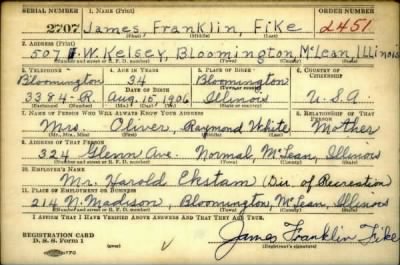 SERIAL NUMBER 1. NAME (Print) ORDER NUMBER
2707 James Franklin, Fike 2451
(First) (Middle) (Last)
2. ADDRESS (Print)
507 W. Kelsey, Bloomington, McLean, Illinois
(Number and street or R. F. D. number) (Town) (County) (State)
3. TELEPHONE 4. AGE IN YEARS 5. PLACE OF BIRTH 6. COUNTRY OF CITIZENSHIP
Bloomington 34 Bloomington
DATE OF BIRTH (Town or county)
3384-R Aug. 15, 1906 Illinois U.S.A.
(Mo.) (Day) (Yr.) (State or country)
7. NAME OF PERSON WHO WILL ALWAYS KNOW YOUR ADDRESS 8. RELATIONSHIP OF THAT PERSON
Mrs. Oliver, Raymond White Mother
(Mr., Mrs., Miss) (First) (Middle) (Last)
9. ADDRESS OF THAT PERSON
324 Glenn Ave. Normal, McLean, Illinois
(Number and street or R. F. D. number) (Town) (County) (State)
10. EMPLOYER'S NAME
Mr. Harold Ekstam (Dir. of Recreation)
11. PLACE OF EMPLOYMENT OR BUSINESS
214 N. Madison, Bloomington, McLean, Illinois
(Number and street or R. F. D. number) (Town) (County) (State)
I AFFIRM THAT I HAVE VERIFIED ABOVE ANSWERS AND THAT THEY ARE TRUE.
REGISTRATION CARD
D. S. S. Form 1
James Franklin Fike
(Registrant's signature)